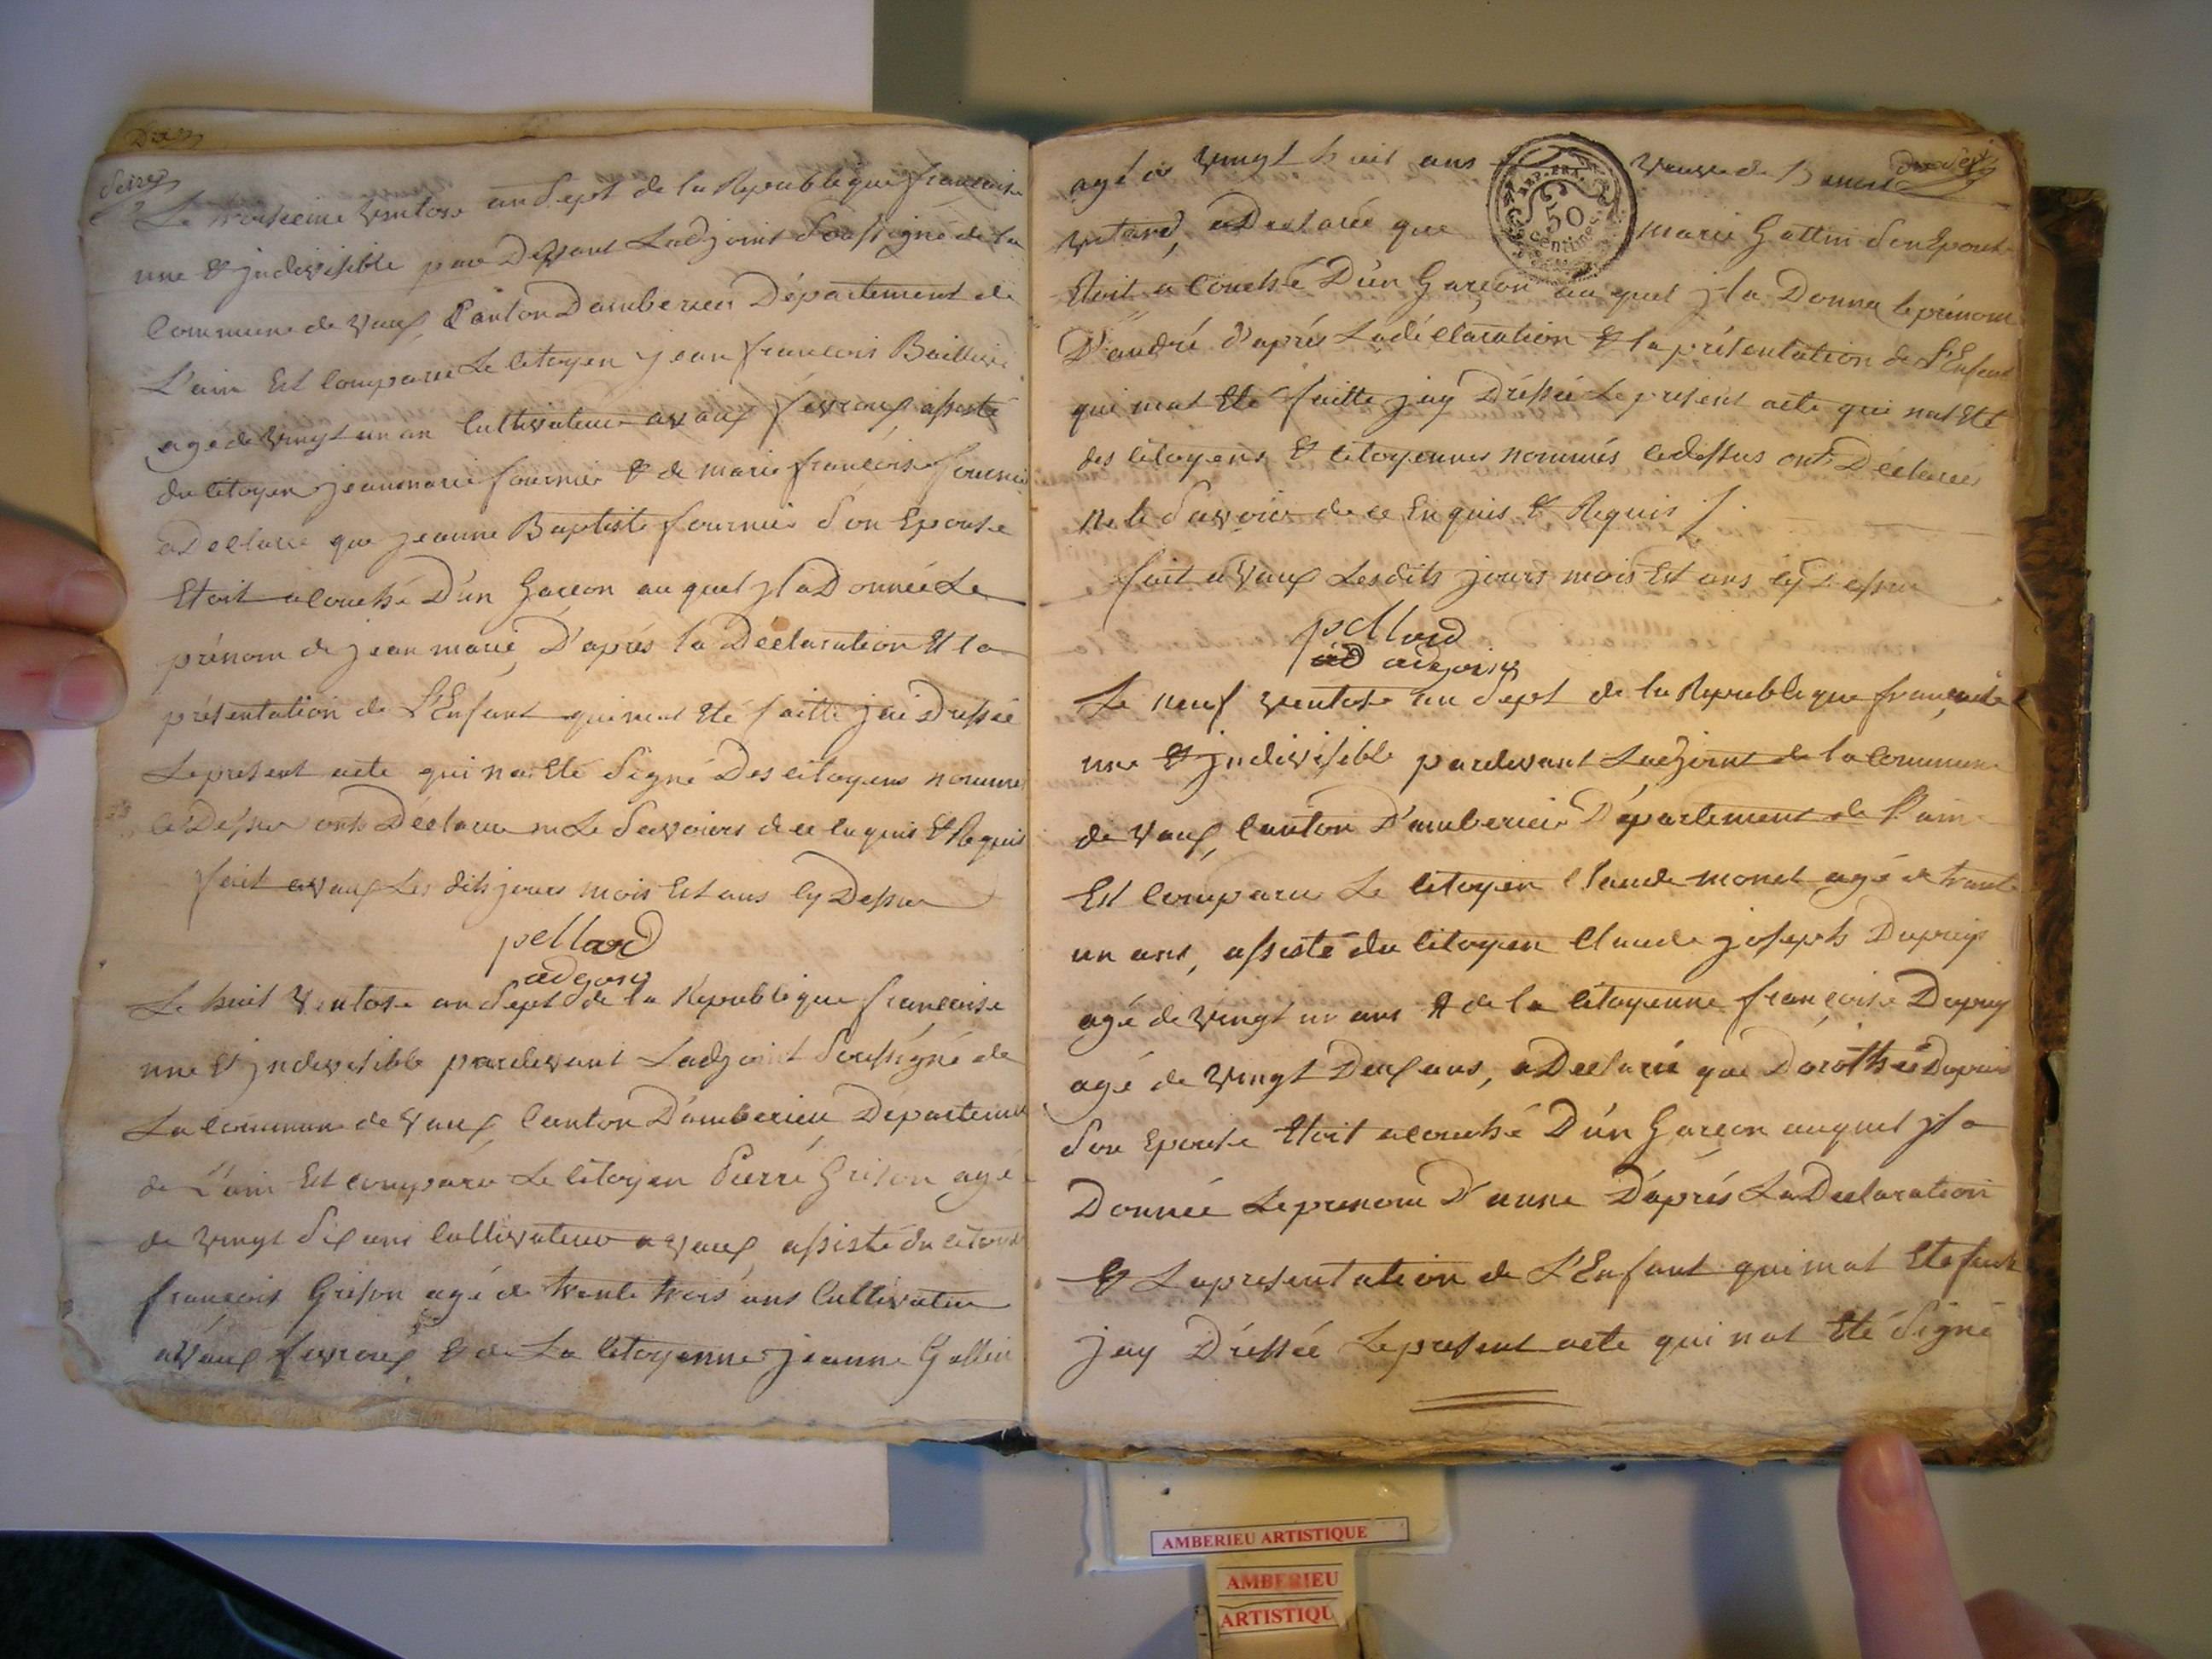 Le troisieme ventose an Sept de la Republique francoise
une & jndivisible par Devant Ladjoint Soussigné de la
Commune de Vaux, Canton Damberieu Département de
L'ain Est comparu Le Citoyen jean francois
age de vingt un an Cultivateur a vaux fevroux, assisté
du Citoyen jeanmarie fournier & de marie francoise fournier
a Declaré que jeanne Baptiste fournier Son Epouse
Etoit acouché D'un Garcon au quel jl a Donnée Le
prénom de jean marie, D'aprés la Declaration Et la
présentation de L'Enfant qui mat Eté faitte jai Dressée
Le present acte qui na Eté Signé Des citoyens nommes
Ci Dessus onts Déclarés ne Le Savoirs de ce Enquis & Requis
fait a vaux Les dits jours mois Et ans Cy Dessus
pellard
adjoint
Le huit Ventose an Sept de la Republique francoise
une & jndivisible pardevant Ladjoint Soussigné de
La Commune de Vaux, Canton D'amberieu Departement
de L'ain Est comparu Le Citoyen Pierre Grison agé
de vingt Six ans Cultivateur a vaux, assisté du citoyen
françois Grison agé de trente trois ans Cultivateur
a Vaux fevroux & de La Citoyenne jeanne Gallin
agé de vingt huit ans veuve de
a Declarée que marie Gallin Son Epouse
Etoit acouché D'un Garçon au quel jl a Donner le prénom
D'andré d'aprés La déclaration & la présentation de L'Enfant
qui mat Eté faitte jay Dréssée Le présent acte qui nat Eté
des citoyens & citoyennes nommés cidessus onts Déclarés
ne le Savoir de ce Enquis & Requis
fait a Vaux Les dits jours mois Et ans cy Dessus
pellard
adjoint
Le neuf ventose an Sept de la Republique françoise
une & jndivisible pardevant Ladjoint de la Commune
de Vaux, Canton D'amberieu Département de L'ain
Est Comparu Le citoyen Claude monet agé de trente
un ans, assisté du Citoyen Claude joseph Dupuy
agé de vingt un ans & de la Citoyenne françoise Dupuy
agé de vingt Deux ans, a Declarée que Dorothée Dupuis
Son Epouse Etoit acouché D'un Garcon auquel jl a
Donnée Le prenom D'anne D'aprés La Declaration
& La presentation de L'Enfant qui mat Eté faitte
jay Dréssée Le present acte qui nat Eté Signé
REP. FRA.
50
Centimes
AMBERIEU ARTISTIQUE
AMBERIEU
ARTISTIQU